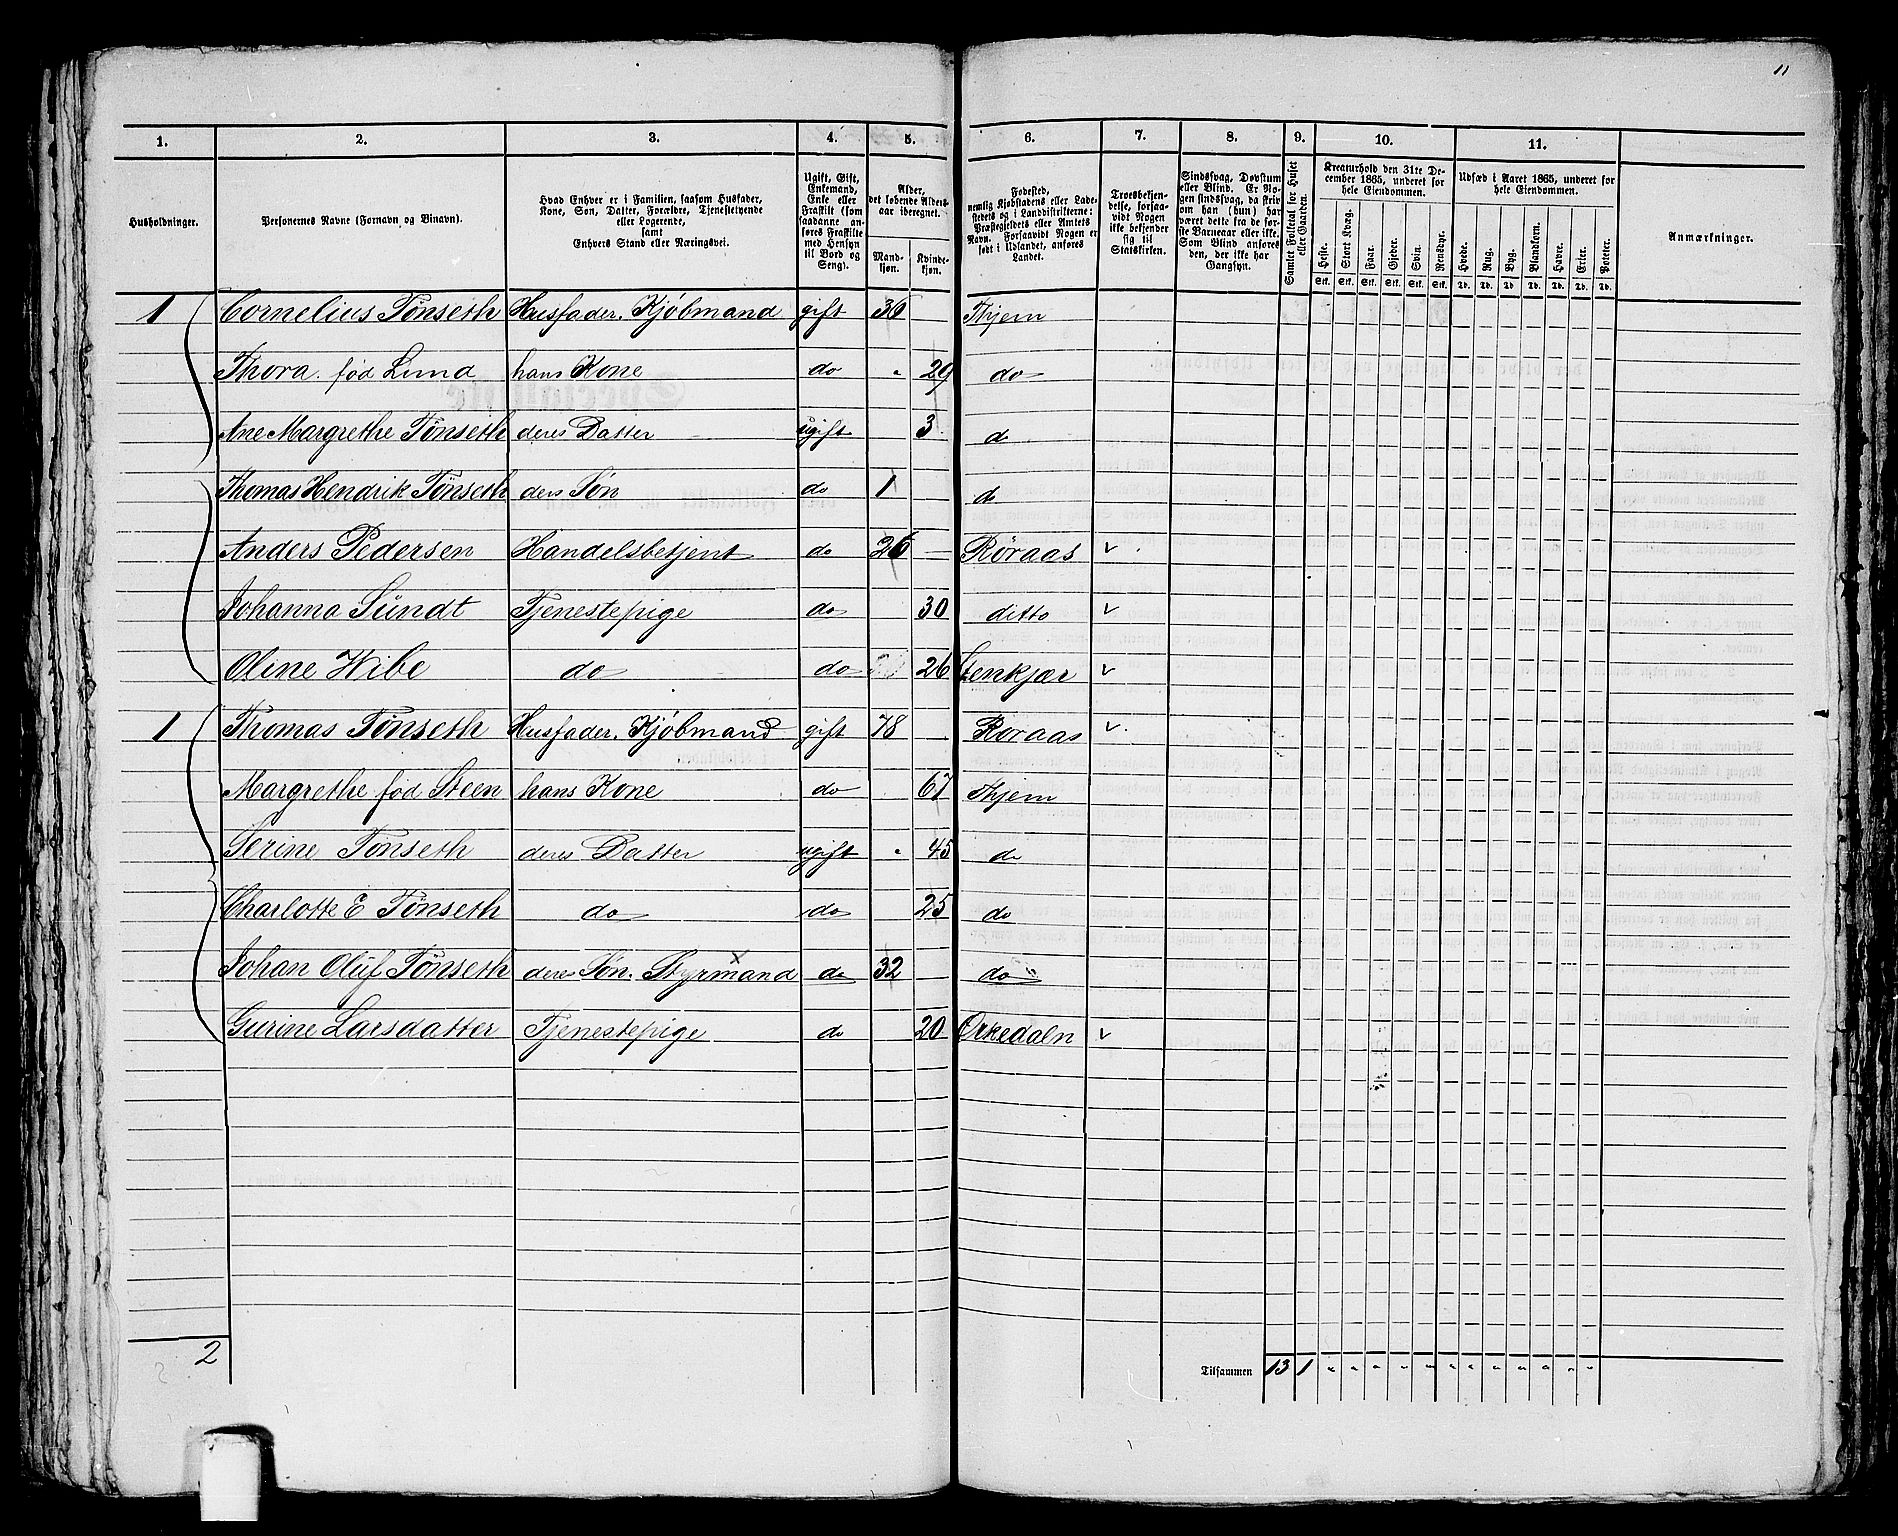 11
1. 2. 3. 4. 5. 6. 7. 8. 9. 10. 11.
Husholdninger.
Personernes Navne (Fornavn og Binavn).
Hvad Enhver er i Familien, saasom Husfader, Kone, Søn, Datter, Forældre, Tjenestetyende eller Logerende, samt Enhvers Stand eller Næringsvei.
Ugift, Gift, Enkemand, Enke eller Fraskilt (som saadanne anføres Fraskilte med Hensyn til Bord og Seng).
Alder, det løbende Aldersaar iberegnet.
Mandkjøn. Kvindekjøn.
Fødested, nemlig Kjøbstadens eller Ladestedets og i Landdistrikterne: Præstegjeldets eller Amtets Navn. Forsaavidt Nogen er født i Udlandet, anføres Landet.
Troesbekjendelse, forsaavidt Nogen ikke bekjender sig til Statskirken.
Sindssvag, Døvstum eller Blind. Er Nogen sindssvag, da skrives om han (hun) har været dette fra de første Barneaar eller ikke. Som Blind anføres den, der ikke har Gangsyn.
Samlet Folketal for Huset eller Gaarden.
Kreaturhold den 31te December 1865, underet for hele Eiendommen.
Heste. Stort Kvæg. Faar. Gjeder. Svin. Rensdyr.
Stk. Stk. Stk. Stk. Stk. Stk.
Udsæd i Aaret 1865, underet for hele Eiendommen.
Hvede. Rug. Byg. Blandkorn. Havre. Erter. Poteter.
Td. Td. Td. Td. Td. Td. Td.
Anmærkninger.
1 Cornelius Tønseth Husfader. Kjøbmand gift 36 Thjem
Thora. fød Lund hans Kone do " 29 do
Ane Margrethe Tønseth deres Datter ugift 3 d
Thomas Hendrik Tønseth ders Søn do 1 d
Anders Pedersen Handelsbetjent do 26 Røraas
Johanna Sundt Tjenestepige do 30 ditto
Oline Wibe do do 26 Stenkjær
1 Thomas Tønseth Husfader. Kjøbmand gift 78 Røraas
Margrethe fød Steen hans Kone do 67 Thjem
Serine Tønseth deres Datter ugift " 45 do
Charlotte E Tønseth do do 25 do
Johan Oluf Tønseth deres Søn. Styrmand do 32 do
Gurine Larsdatter Tjenestepige do 20 Orkedaln
2 Tilsammen 13 1 " " " " " " " " " " " "